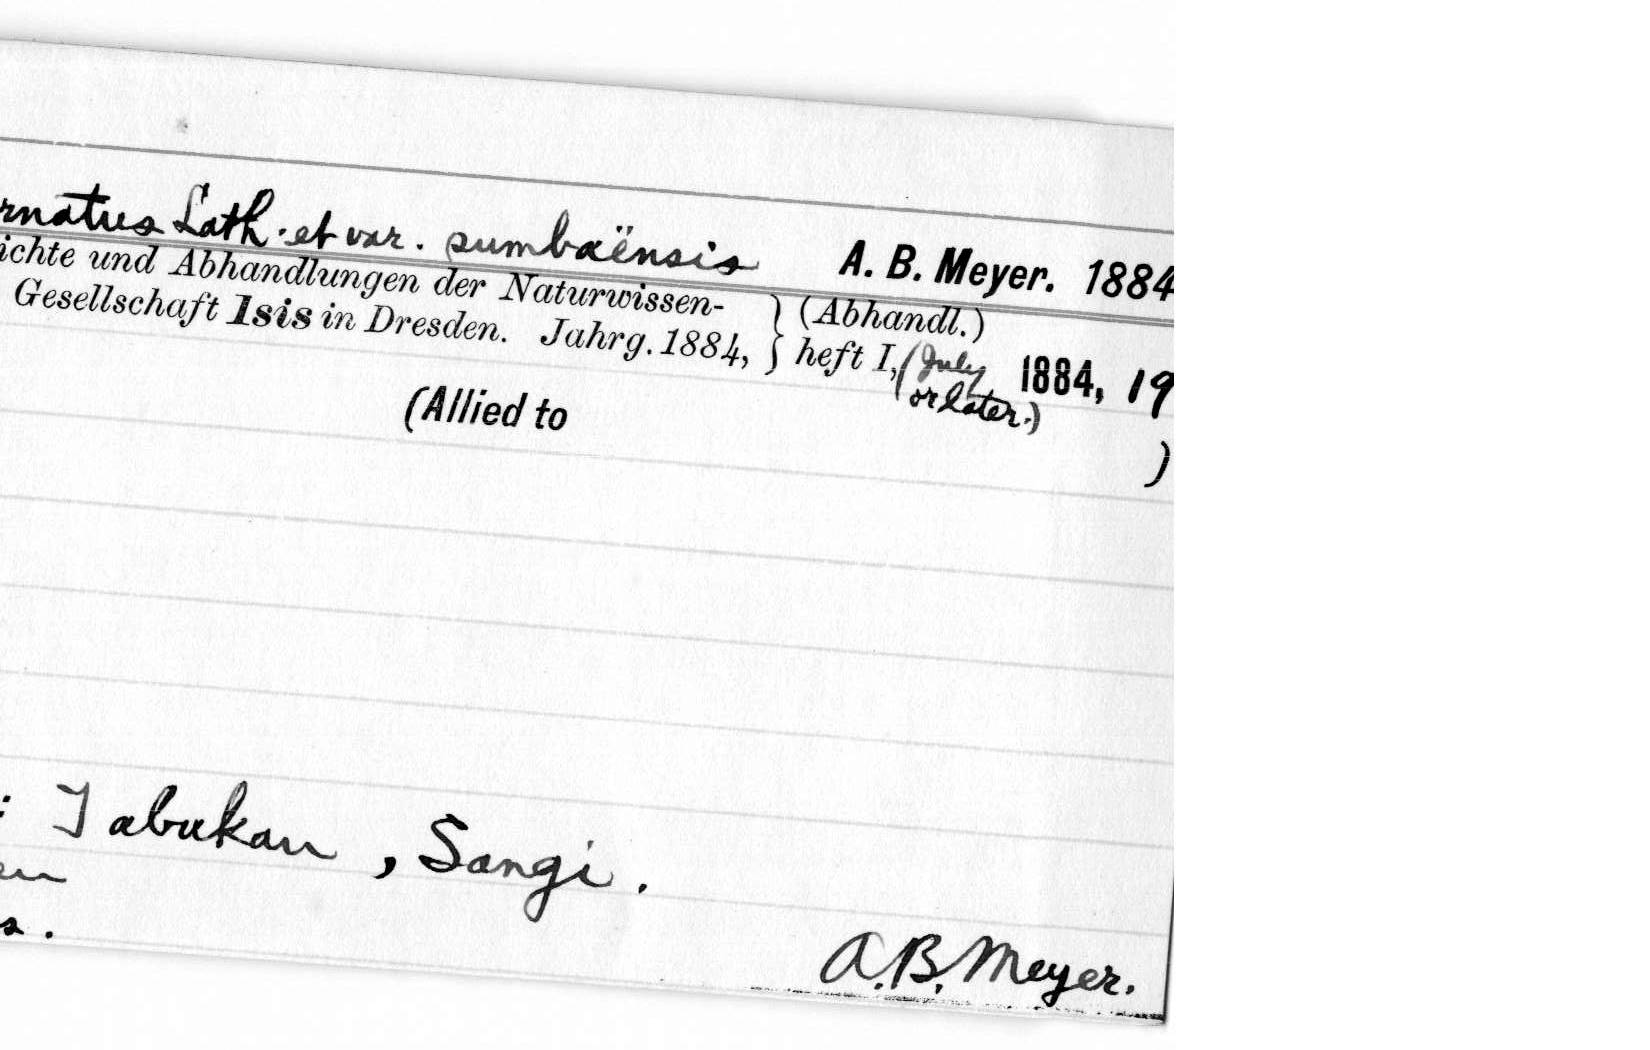 rnatus Lath. et var. sumbaënsis A. B. Meyer. 1884
ichte und Abhandlungen der Naturwissen- } (Abhandl.)
Gesellschaft Isis in Dresden. Jahrg. 1884, } heft I, (July 1884, 19
or later.)
(Allied to )
: Tabukan, Sangi.
en
s.
A.B. Meyer.